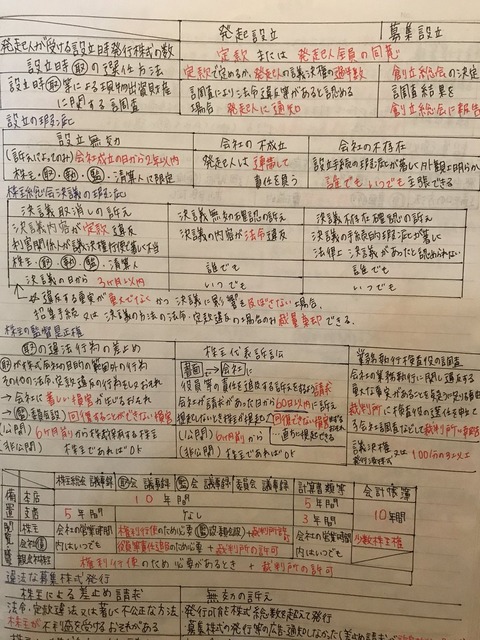 発起設立 募集設立
発起人が受ける設立時発行株式の数 定款 または 発起人全員の同意
設立時(取)の選任方法 定款で定めるか、発起人の議決権の過半数 創立総会の決定
設立時(取)等による現物出資財産 調査により法令違反等があると認める 調査結果を
に関する調査 場合 発起人に通知 創立総会に報告
設立の瑕疵
設立無効 会社の不成立 会社の不存在
(訴えによってのみ)会社成立の日から2年以内 発起人は連帯して 設立手続の瑕疵が著しく外観上明らか
株主・(取)・(執)・清算人に限定 責任を負う 誰でもいつでも主張できる
株主総会決議の瑕疵
決議取消しの訴え 決議無効確認の訴え 決議不存在確認の訴え
決議内容が定款違反 決議の内容が法令違反 決議の手続的瑕疵が著しく
利害関係人が議決権行使し著しく不当 法律上決議があったと認められない
株主・(取)(執)(監)・清算人 誰でも 誰でも
決議の日から3ヶ月以内 いつでも いつでも
違反する事実が重大でなくかつ決議に影響を及ぼさない場合。
招集手続又は決議の方法の法令・定款違反の場合のみ裁量棄却できる。
株主の監督是正権
(取)の違法行為の差止め 株主代表訴訟 業務執行検査役の調査
(取)が株式会社の目的の範囲外の行為 書面→会社に 会社の業務執行に関し違反する
その他の法令・定款違反の行為をしするおそれ 役員等の責任を追及する訴えを提起するよう請求
→会社に著しい損害が生じるおそれ 会社が請求があった日から60日以内に訴え 裁判所に検査役の選任を申立て
回復することができない損害
(公開)6ヶ月前から株式保有する株主 (公開)6ヶ月前から 直ちに提起できる 議決権
(非公開)株主であればOK (非公開)株主であればOK 100分の3以上
株主総会議事録 (取)会議事録 (監)会議事録 委員会議事録 計算書類等 会計帳簿
備置 本店 10年間 5年間 10年間
支店 5年間 なし 3年間
閲覧 株主 会社の営業時間 権利行使のため必要 +裁判所許可 会社の営業時間 少数株主権
会社(債) 内はいつでも 役員等責任追及のため必要+裁判所の許可 内はいつでも
親会社株主 権利行使のため必要があるとき + 裁判所の許可
違法な募集株式発行
株主による差止め請求 無効の訴え
法令・定款違法又は著しく不公正な方法 ・発行可能株式総数を超えて発行
株主が不利益を受けるおそれがある ・募集株式の発行等の公告・通知しなかった